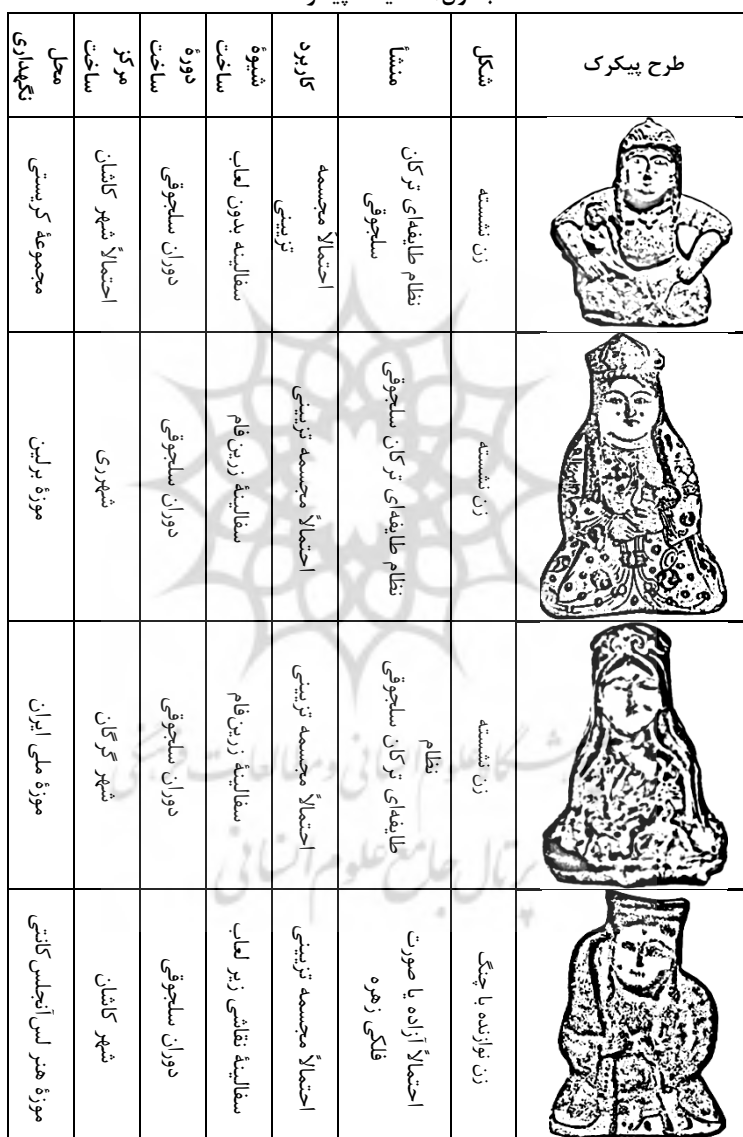 طرح پیکرک
شکل
منشأ
کاربرد
شیوهٔ
ساخت
دورهٔ
ساخت
مرکز
ساخت
محل
نگهداری
زن نشسته
نظام طایفه‌ای ترکان
سلجوقی
احتمالاً مجسمه
تزیینی
سفالینه بدون لعاب
دوران سلجوقی
احتمالاً شهر کاشان
مجموعهٔ کریستی
زن نشسته
نظام طایفه‌ای ترکان سلجوقی
احتمالاً مجسمه تزیینی
سفالینهٔ زرین‌فام
دوران سلجوقی
شهرری
موزهٔ برلین
زن نشسته
نظام
طایفه‌ای ترکان سلجوقی
احتمالاً مجسمه تزیینی
سفالینهٔ زرین‌فام
دوران سلجوقی
شهر گرگان
موزهٔ ملی ایران
زن نوازنده با چنگ
احتمالاً آزاده یا صورت
فلکی زهره
احتمالاً مجسمه تزیینی
سفالینهٔ نقاشی زیر لعاب
دوران سلجوقی
شهر کاشان
موزهٔ هنر لس‌آنجلس کانتی
پژوهشگاه علوم انسانی و مطالعات فرهنگی
پرتال جامع علوم انسانی